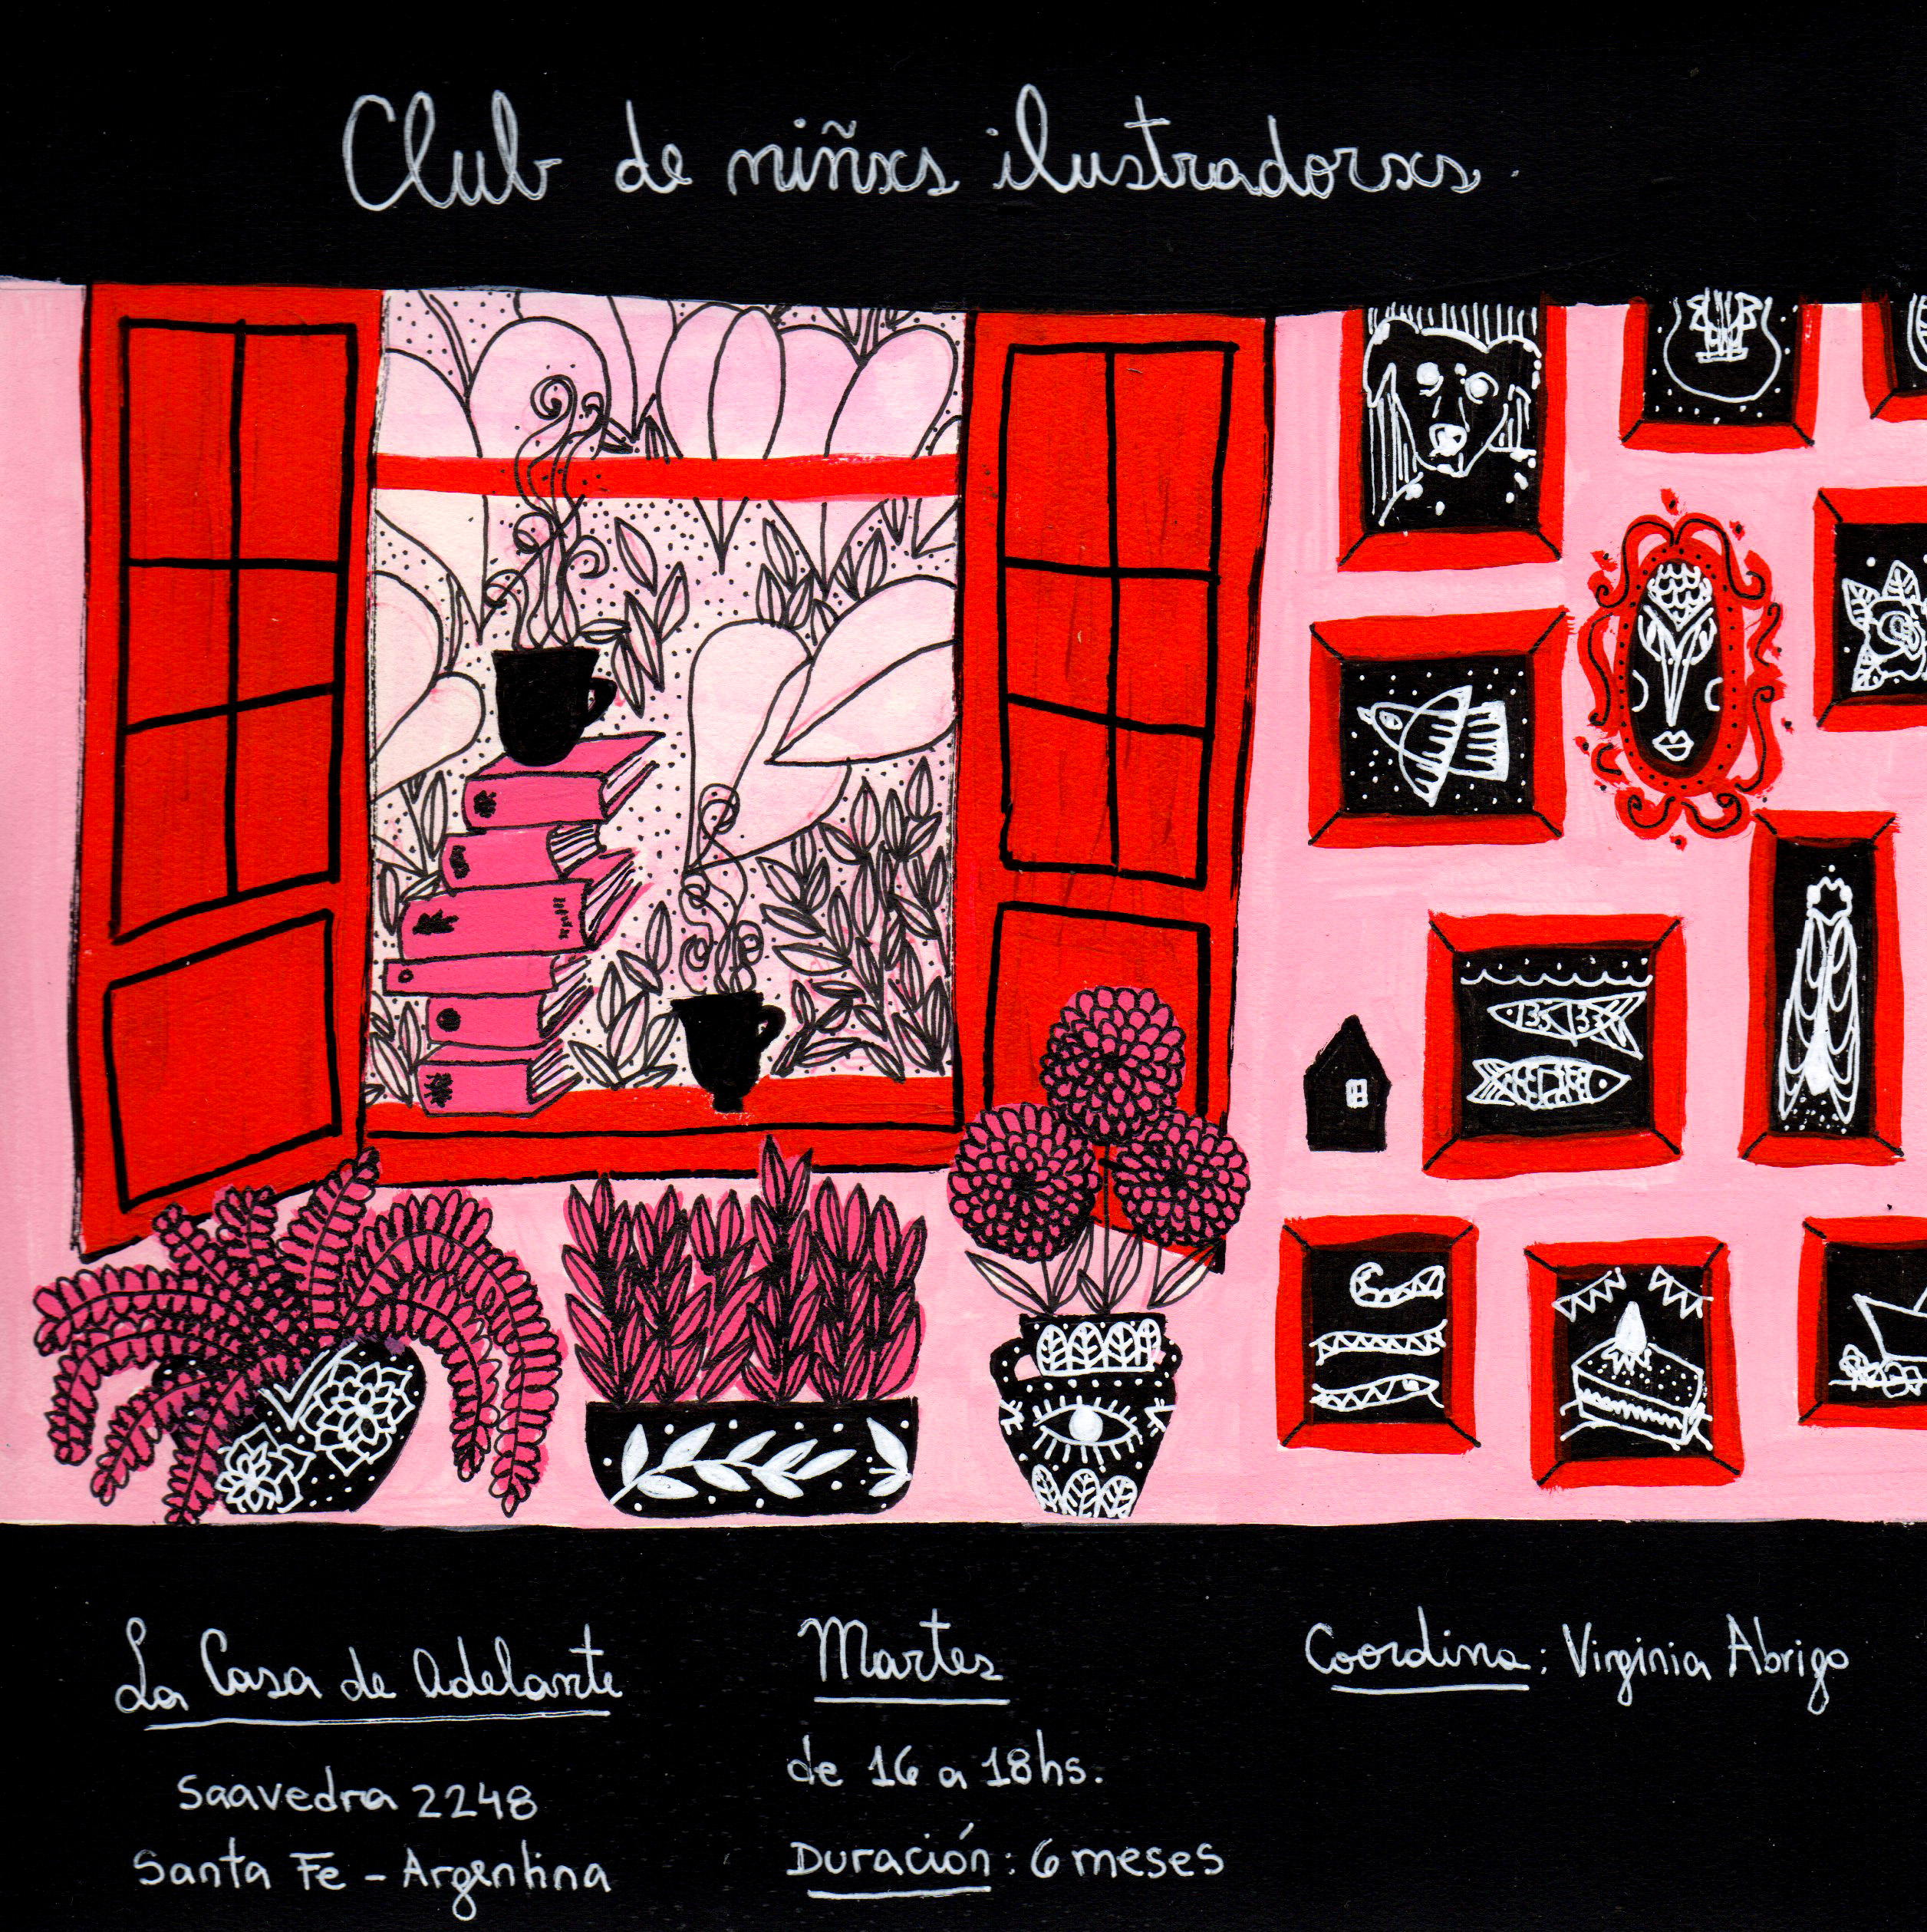 Club de niñxs ilustradorxs.
La Casa de Adelante
Saavedra 2248
Santa Fe - Argentina
Martes
de 16 a 18hs.
Duración: 6 meses
Coordina: Virginia Abrigo